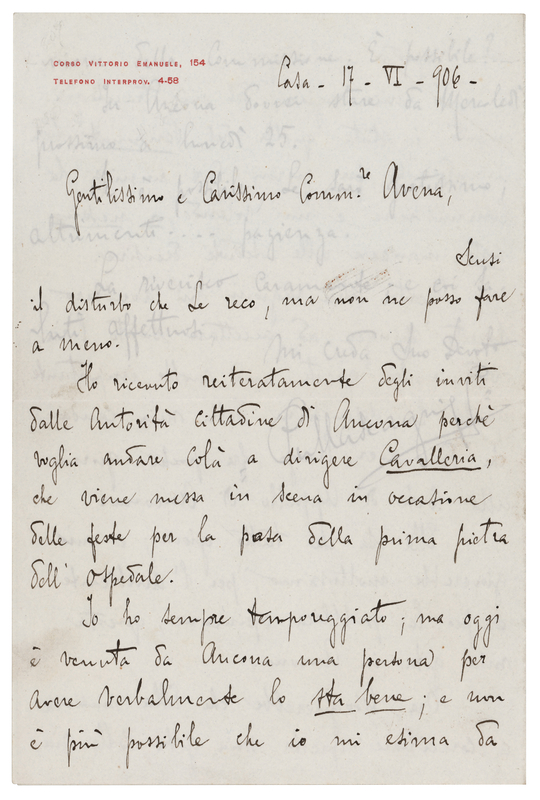 CORSO VITTORIO EMANUELE, 154
TELEFONO INTERPROV. 4-58
Casa - 17 - VI - 906 -
Gentilissimo e Carissimo Comm.re Avena,
Scusi
il disturbo che Le reco, ma non ne posso fare
a meno.
Ho ricevuto reiteratamente degli inviti
dalle Autorità cittadine di Ancona perchè
voglia andare colà a dirigere Cavalleria,
che viene messa in scena in occasione
delle feste per la posa della prima pietra
dell' Ospedale.
Io ho sempre temporeggiato; ma oggi
è venuta da Ancona una persona per
avere verbalmente lo sta bene; e non
è più possibile che io mi esima da